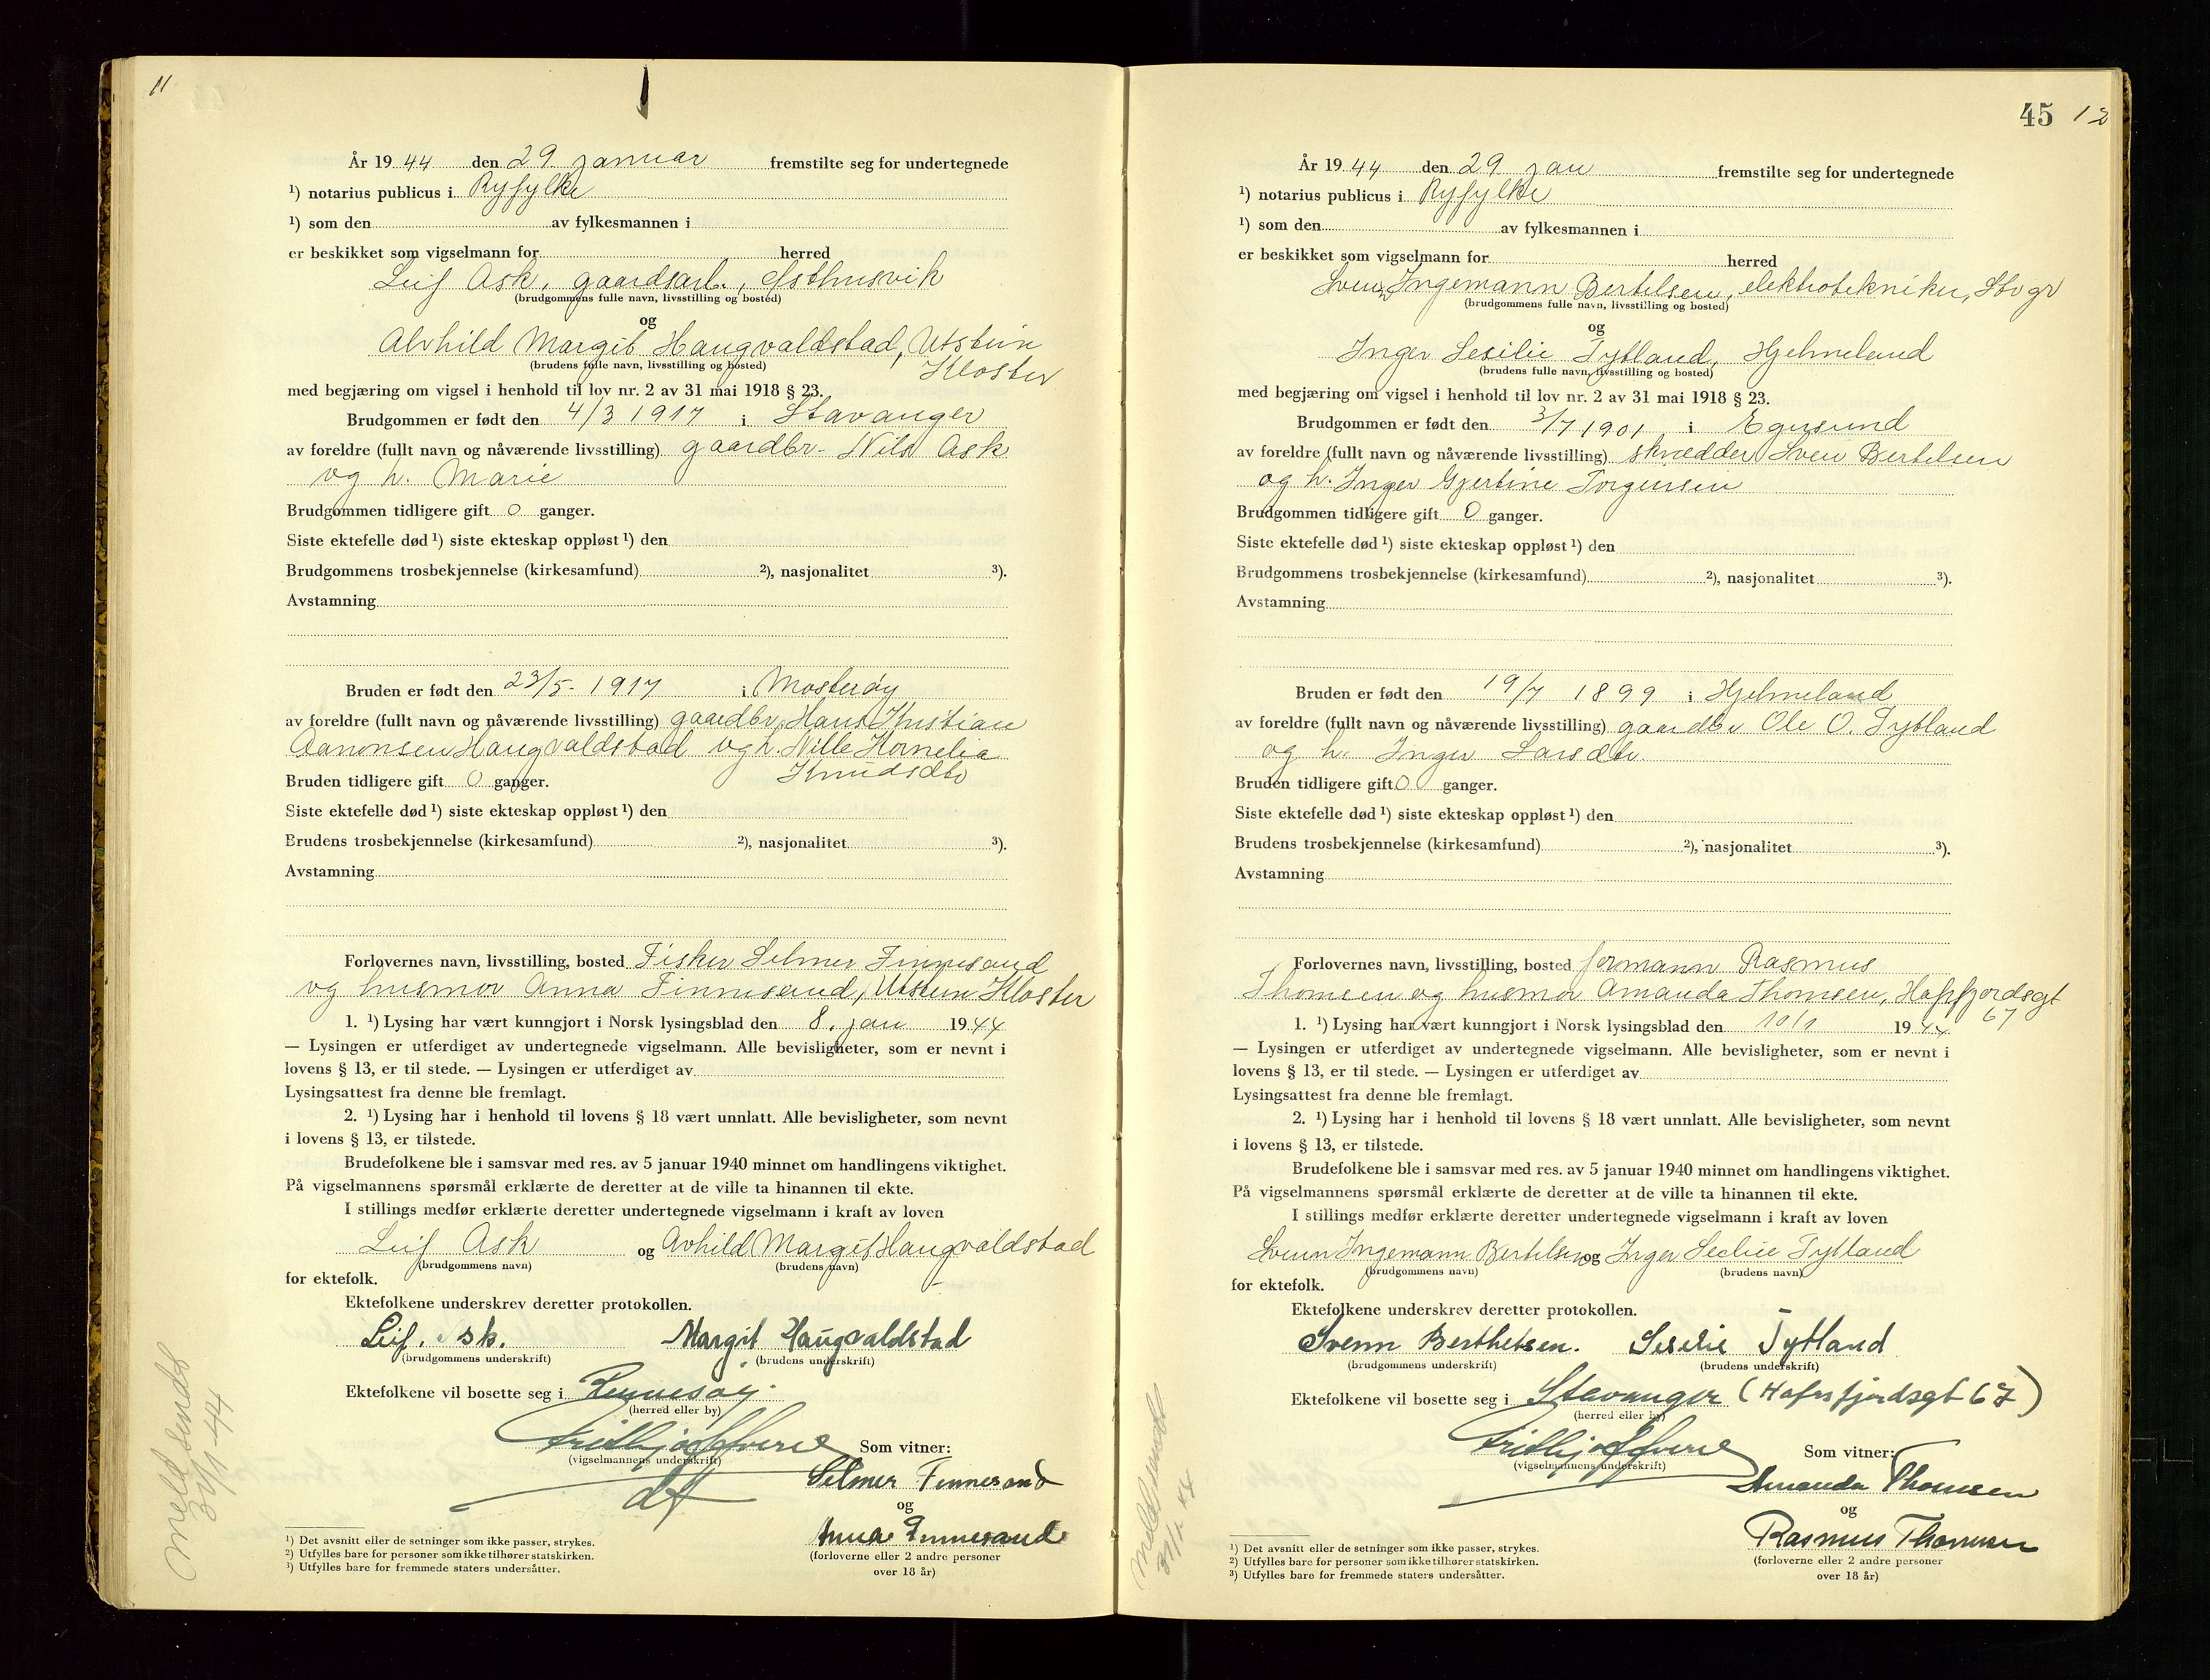 11
År 19 44 den 29 januar fremstilte seg for undertegnede
¹) notarius publicus i Ryfylke
¹) som den av fylkesmannen i
er beskikket som vigselmann for herred
Leif Ask, gaardsarb., Østhusvik
(brudgommens fulle navn, livsstilling og bosted)
og
Alvhild Margit Haugvaldstad, Utstein
(brudens fulle navn, livsstilling og bosted)
Kloster
med begjæring om vigsel i henhold til lov nr. 2 av 31 mai 1918 § 23.
Brudgommen er født den 4/3 1917 i Stavanger
av foreldre (fullt navn og nåværende livsstilling) gaardbr. Nils Ask
og h. Marie
Brudgommen tidligere gift 0 ganger.
Siste ektefelle død ¹) siste ekteskap oppløst ¹) den
Brudgommens trosbekjennelse (kirkesamfund) ²), nasjonalitet ³).
Avstamning
Bruden er født den 23/5 - 1917 i Mosterøy
av foreldre (fullt navn og nåværende livsstilling) gaardbr. Hans Kristian
Aanonsen Haugvaldstad og h. Nille Kornelia
Knudsdtr
Bruden tidligere gift 0 ganger.
Siste ektefelle død ¹) siste ekteskap oppløst ¹) den
Brudens trosbekjennelse (kirkesamfund) ²), nasjonalitet ³).
Avstamning
Forlovernes navn, livsstilling, bosted Fisker Selmer Finnesand
og husmor Anna Finnesand, Utstein Kloster
1. ¹) Lysing har vært kunngjort i Norsk lysingsblad den 8. jan 19 44
— Lysingen er utferdiget av undertegnede vigselmann. Alle bevisligheter, som er nevnt i
lovens § 13, er til stede. — Lysingen er utferdiget av
Lysingsattest fra denne ble fremlagt.
2. ¹) Lysing har i henhold til lovens § 18 vært unnlatt. Alle bevisligheter, som nevnt
i lovens § 13, er tilstede.
Brudefolkene ble i samsvar med res. av 5 januar 1940 minnet om handlingens viktighet.
På vigselmannens spørsmål erklærte de deretter at de ville ta hinannen til ekte.
I stillings medfør erklærte deretter undertegnede vigselmann i kraft av loven
Leif Ask og Avhild Margit Haugvaldstad
(brudgommens navn) (brudens navn)
for ektefolk.
Ektefolkene underskrev deretter protokollen.
Leif. Ask. Margit Haugvaldstad
(brudgommens underskrift) (brudens underskrift)
Ektefolkene vil bosette seg i Rennesøy.
(herred eller by)
Som vitner:
(vigselmannens underskrift)
Selmer Finnesand
og
Anna Finnesand
(forloverne eller 2 andre personer
over 18 år)
¹) Det avsnitt eller de setninger som ikke passer, strykes.
²) Utfylles bare for personer som ikke tilhører statskirken.
³) Utfylles bare for fremmede staters undersåtter.
Meld. sendt
31/1-44
45 12
År 19 44 den 29 jan fremstilte seg for undertegnede
¹) notarius publicus i Ryfylke
¹) som den av fylkesmannen i
er beskikket som vigselmann for herred
Svenn Ingemann Bertelsen, elektrotekniker, Stvgr
(brudgommens fulle navn, livsstilling og bosted)
og
Inger Sesilie Tytland, Hjelmeland
(brudens fulle navn, livsstilling og bosted)
med begjæring om vigsel i henhold til lov nr. 2 av 31 mai 1918 § 23.
Brudgommen er født den 3/7 1901 i Egersund
av foreldre (fullt navn og nåværende livsstilling) skrædder Sven Bertelsen
og h. Inger Gjertine Torgersen
Brudgommen tidligere gift 0 ganger.
Siste ektefelle død ¹) siste ekteskap oppløst ¹) den
Brudgommens trosbekjennelse (kirkesamfund) ²), nasjonalitet ³).
Avstamning
Bruden er født den 19/7 1899 i Hjelmeland
av foreldre (fullt navn og nåværende livsstilling) gaardbr Ole O. Tytland
og h. Inger Larsdtr.
Bruden tidligere gift 0 ganger.
Siste ektefelle død ¹) siste ekteskap oppløst ¹) den
Brudens trosbekjennelse (kirkesamfund) ²), nasjonalitet ³).
Avstamning
Forlovernes navn, livsstilling, bosted formann Rasmus
Thomsen og husmor Amanda Thomsen, Hafrsfjordsgt
67
1. ¹) Lysing har vært kunngjort i Norsk lysingsblad den 10/1 19 44
— Lysingen er utferdiget av undertegnede vigselmann. Alle bevisligheter, som er nevnt i
lovens § 13, er til stede. — Lysingen er utferdiget av
Lysingsattest fra denne ble fremlagt.
2. ¹) Lysing har i henhold til lovens § 18 vært unnlatt. Alle bevisligheter, som nevnt
i lovens § 13, er tilstede.
Brudefolkene ble i samsvar med res. av 5 januar 1940 minnet om handlingens viktighet.
På vigselmannens spørsmål erklærte de deretter at de ville ta hinannen til ekte.
I stillings medfør erklærte deretter undertegnede vigselmann i kraft av loven
Svenn Ingemann Bertelsen og Inger Secilie Tytland
(brudgommens navn) (brudens navn)
for ektefolk.
Ektefolkene underskrev deretter protokollen.
Svenn Berthelsen. Sesilie Tytland
(brudgommens underskrift) (brudens underskrift)
Ektefolkene vil bosette seg i Stavanger (Hafrsfjordsgt 67)
(herred eller by)
Som vitner:
(vigselmannens underskrift)
Amanda Thomsen
og
Rasmus Thomsen
(forloverne eller 2 andre personer
over 18 år)
¹) Det avsnitt eller de setninger som ikke passer, strykes.
²) Utfylles bare for personer som ikke tilhører statskirken.
³) Utfylles bare for fremmede staters undersåtter.
Meld. sendt
31/1-44